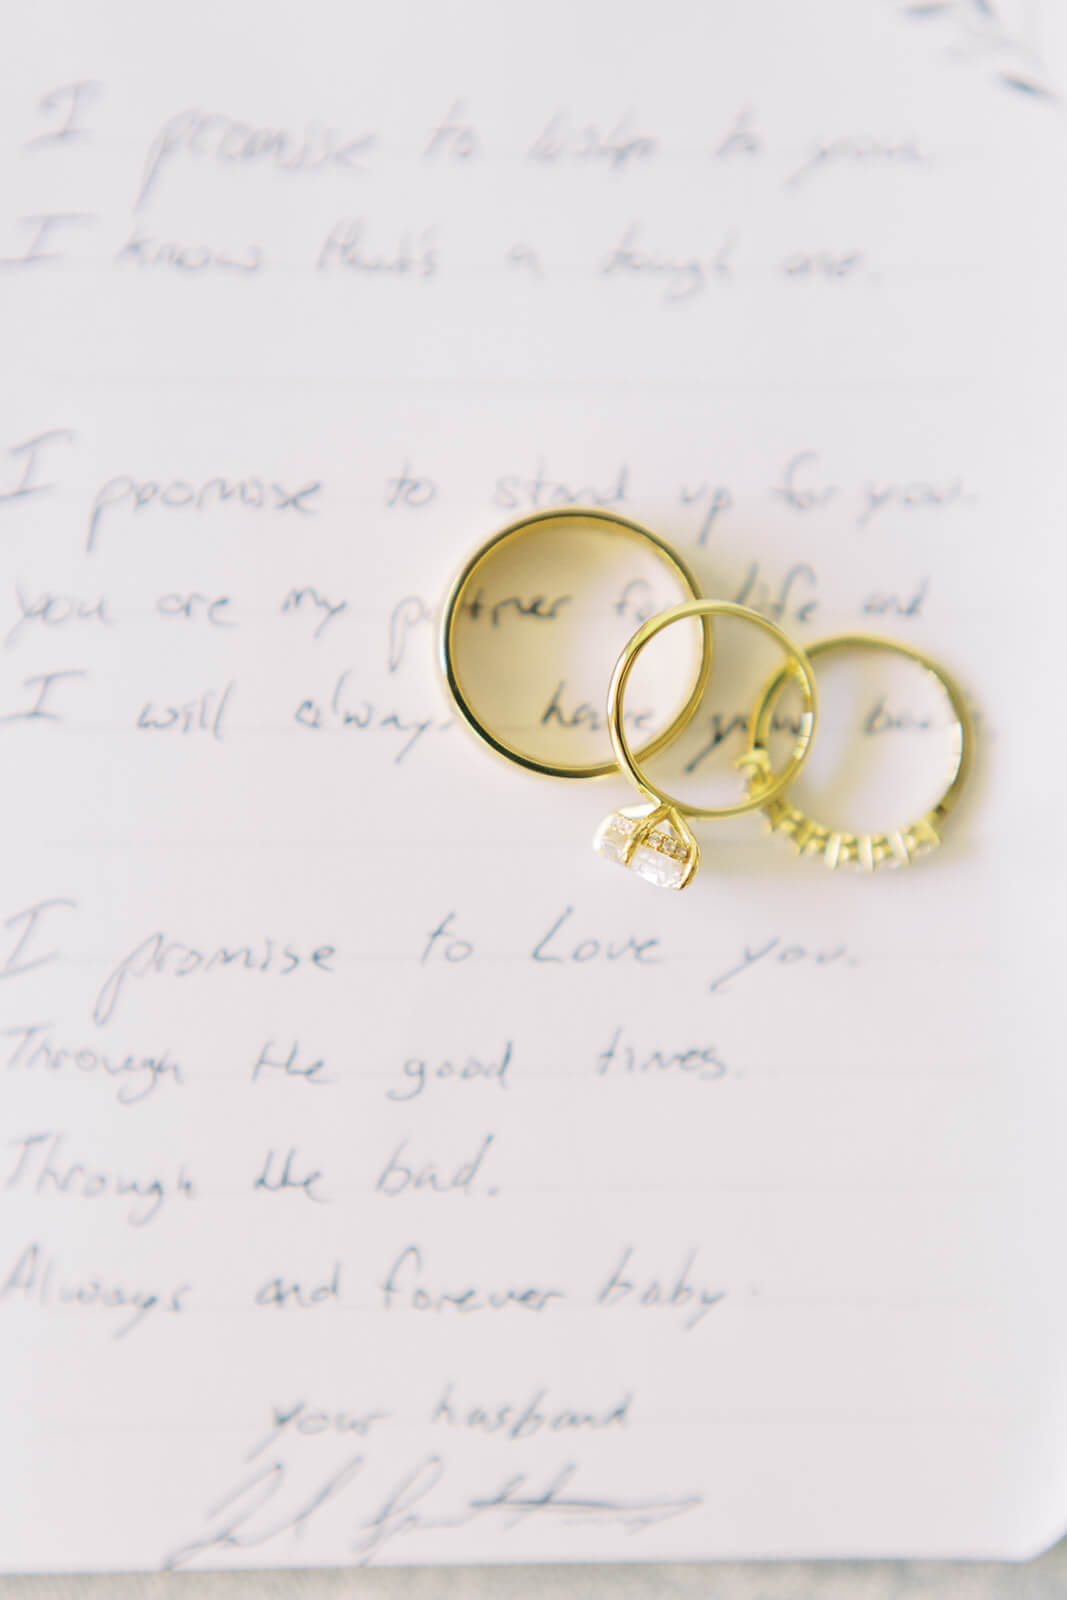 I promise to listen to you.
I know that's a tough one.
I promise to stand up for you.
you are my partner for life and
I will always have your back.
I promise to Love you.
Through the good times.
Through the bad.
Always and forever baby.
your husband